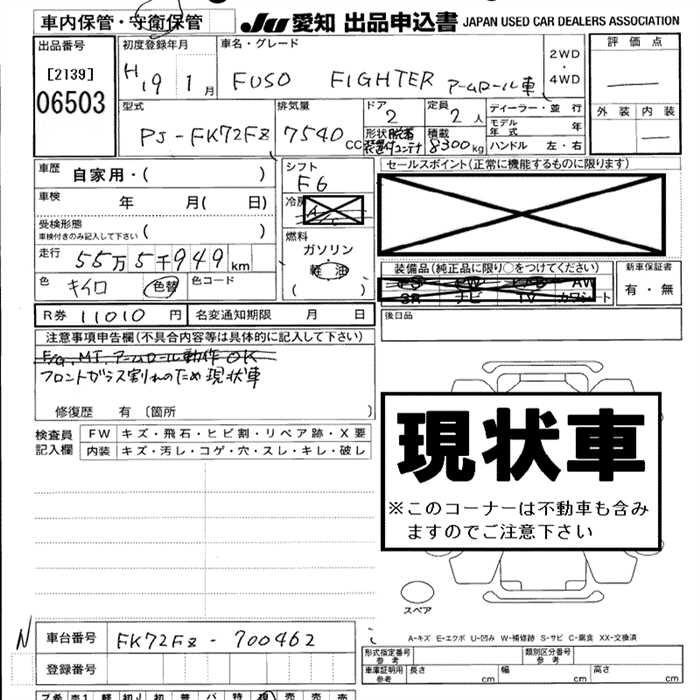 車内保管・守衛保管
Ju 愛知 出品申込書 JAPAN USED CAR DEALERS ASSOCIATION
出品番号
[2139]
06503
初度登録年月
H19 1月
車名・グレード
FUSO FIGHTER アームロール車
2WD
・
4WD
評価点
外装 内装
型式
PJ-FK72FZ
排気量
7540 CC
ドア
2
定員
2人
形状 脱着
装置付コンテナ
積載
8300kg
ディーラー・並行
モデル年式 年
ハンドル 左・右
車歴
自家用・( )
車検 年 月( 日)
受検形態
車検付きのみ記入して下さい ( )
走行 55万5千949km
色 キイロ 色替 色コード
シフト
F6
冷房
燃料
ガソリン
軽油
( )
セールスポイント(正常に機能するものに限ります)
装備品(純正品に限り○をつけてください)
PS PW エアB AW
SR ナビ TV カワシート
新車保証書
有・無
後日品
R券 11010 円 名変通知期限 月 日
注意事項申告欄(不具合内容等は具体的に記入して下さい)
F/G、MT、アームロール動作OK
フロントガラス割れのため現状車
修復歴 有 〔箇所 〕
検査員記入欄
FW キズ・飛石・ヒビ割・リペア跡・X要
内装 キズ・汚レ・コゲ・穴・スレ・キレ・破レ
現状車
※このコーナーは不動車も含み
ますのでご注意下さい
スペア
A-キズ E-エクボ U-凹み W-補修跡 S-サビ C-腐食 XX-交換済
N 車台番号 FK72FZ-700462
登録番号
形式指定番号 参考
類別区分番号 参考
車庫証明用 参考 長さ cm 幅 cm 高さ cm